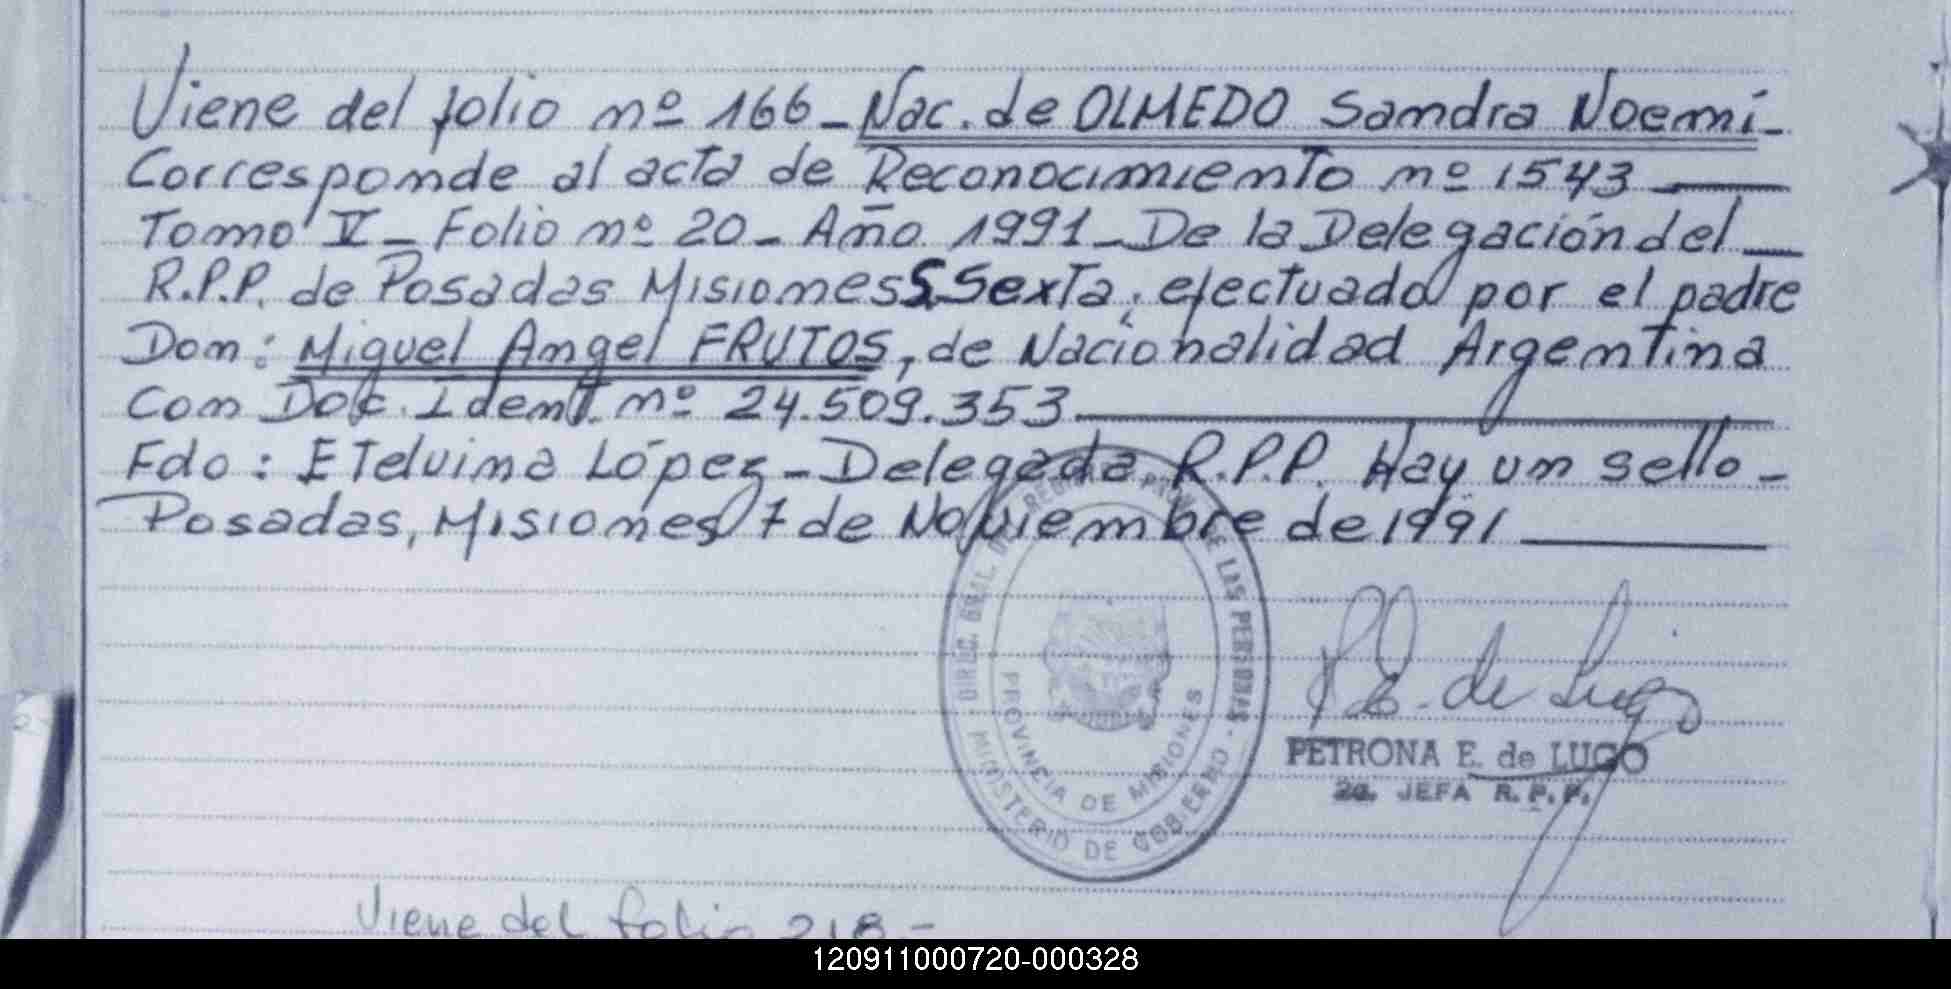 Viene del folio nº 166_Nac. de OLMEDO Sandra Noemí_
Corresponde al acta de Reconocimiento nº 1543
Tomo V_ Folio nº 20_ Año 1991_De la Delegación del
R.P.P. de Posadas Misiones S.Sexta, efectuado por el padre
Don: Miguel Angel FRUTOS, de Nacionalidad Argentina
Con Doc. Ident. nº 24.509.353
Fdo: ETelvina López_Delegada R.P.P. Hay un sello_
Posadas, Misiones 7 de Noviembre de 1991
DIREC. GRAL. DEL REGISTRO PROV. DE LAS PERSONAS
PROVINCIA DE MISIONES
MINISTERIO DE GOBIERNO
P.E. de Lugo
PETRONA E. de LUGO
2a. JEFA R.P.P.
Viene del folio 218-
120911000720-000328